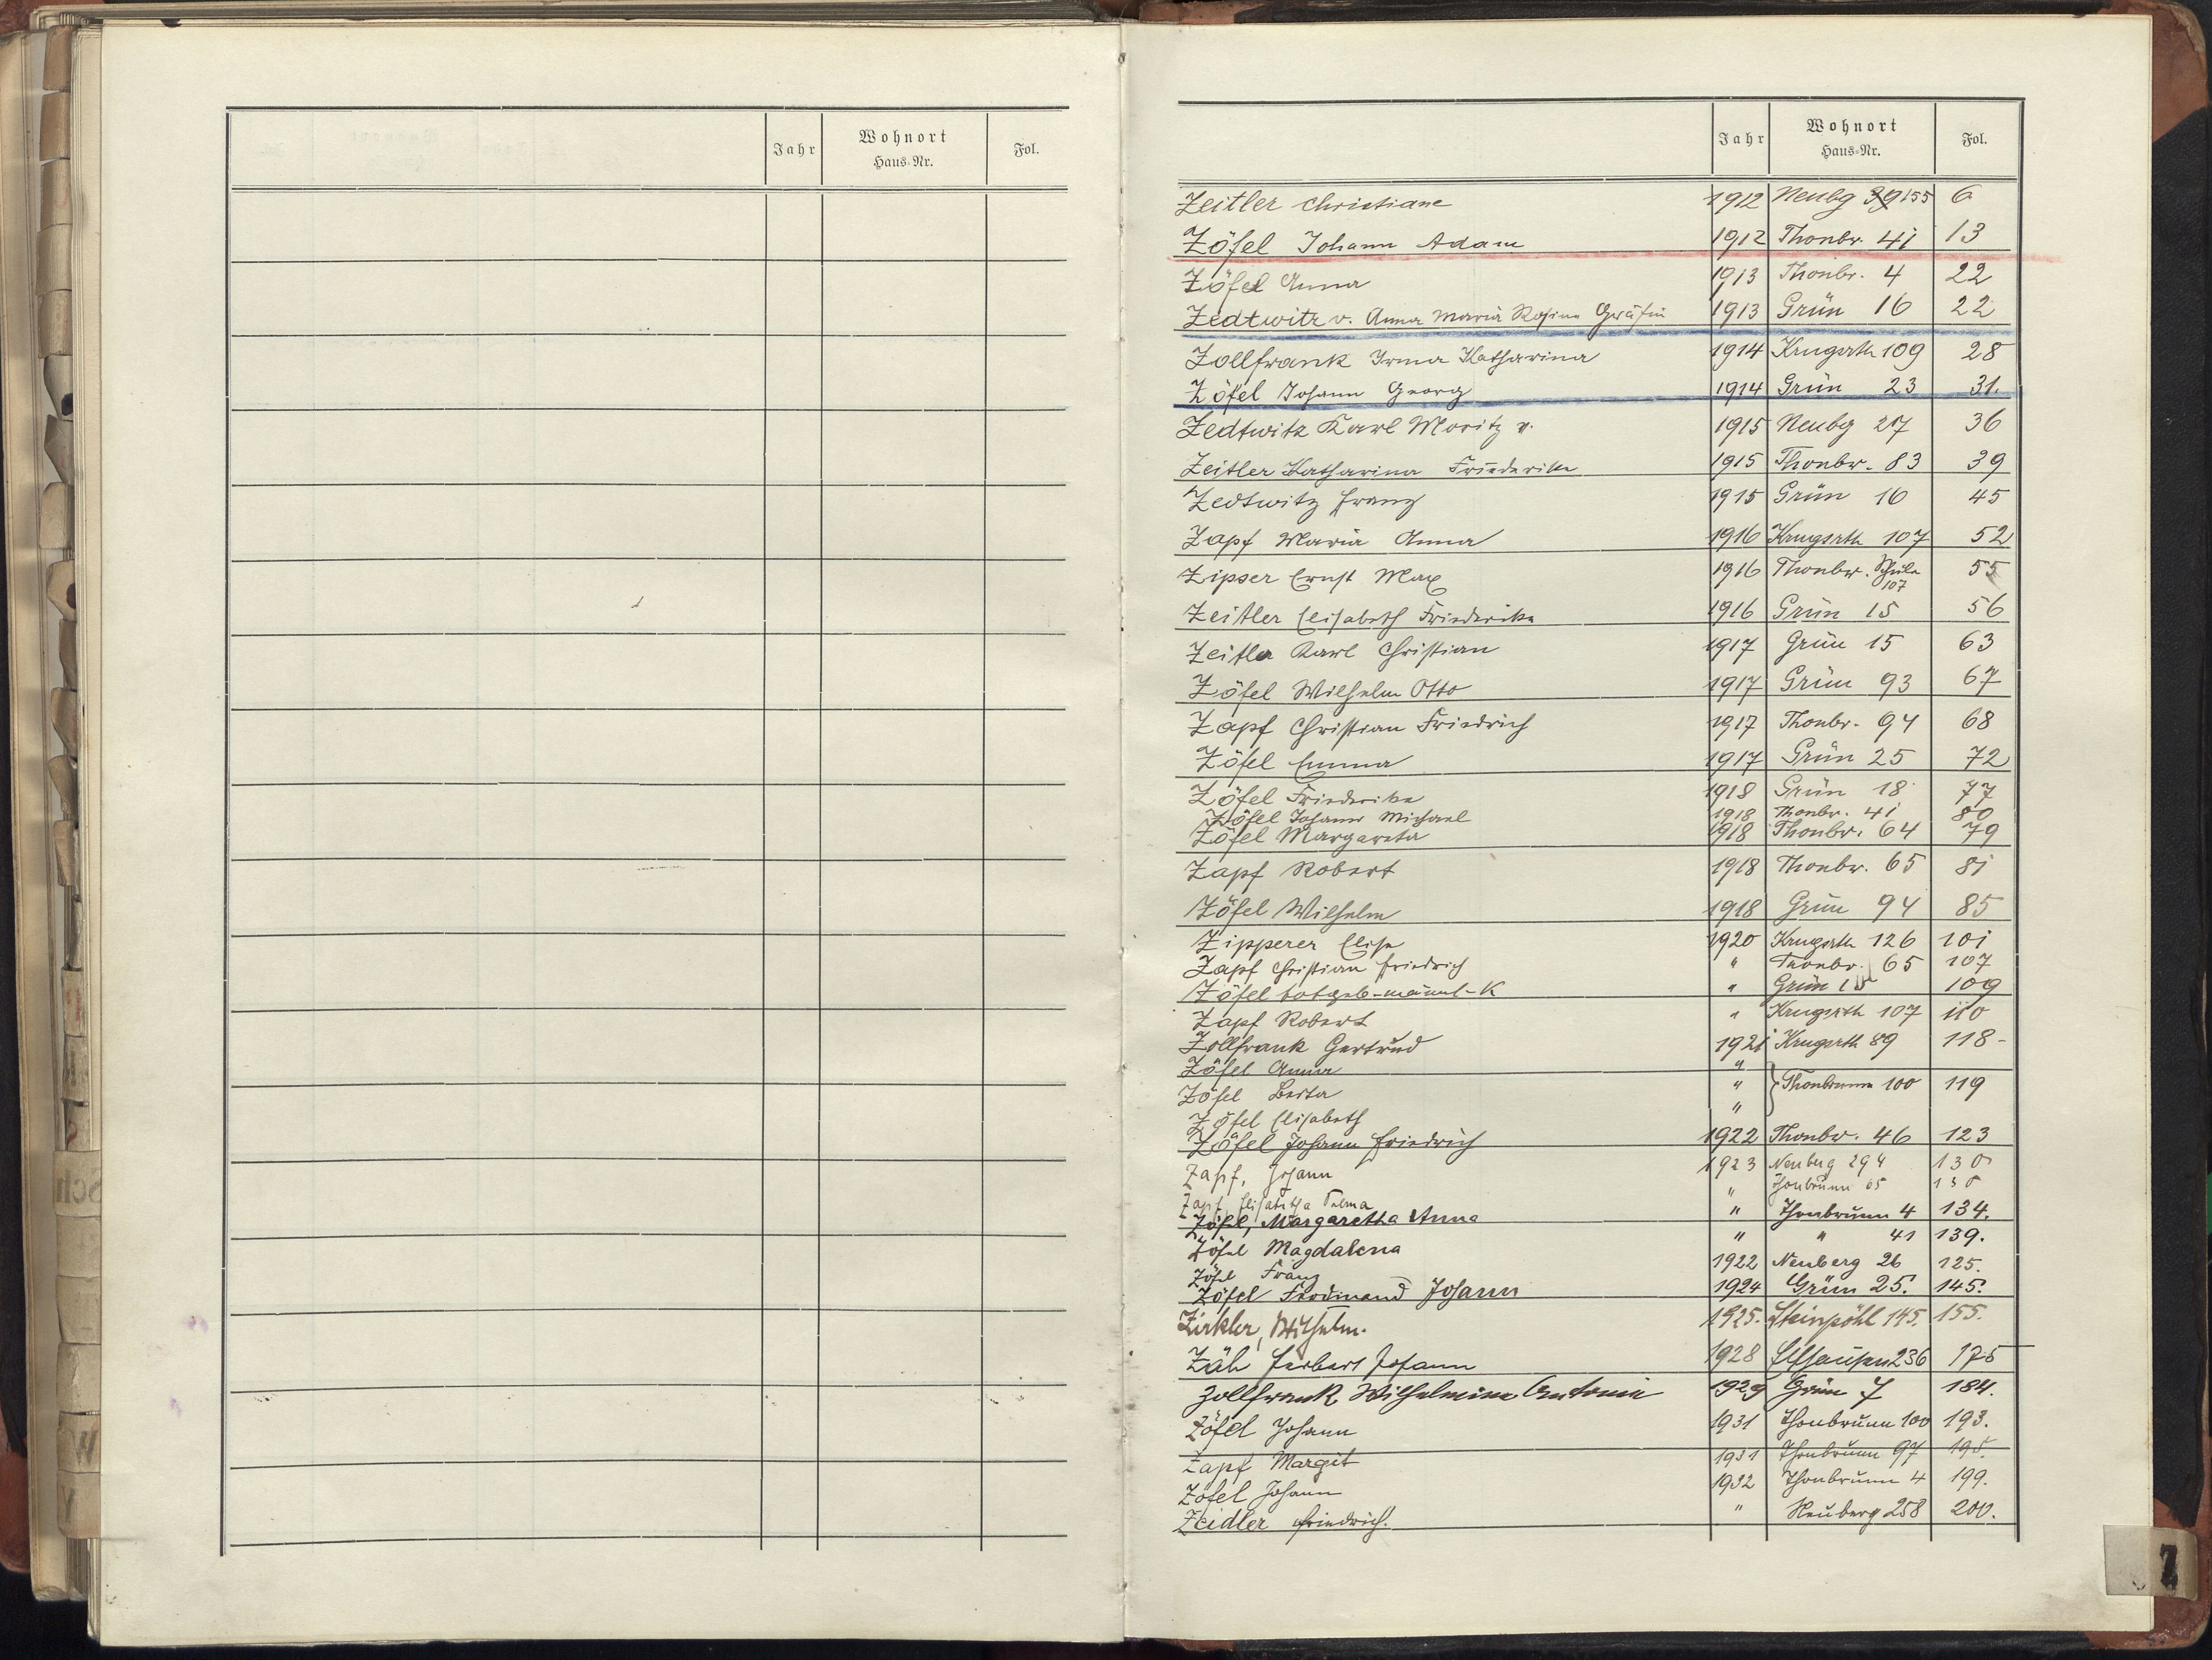 Jahr Wohnort Fol.
Haus-Nr.
Jahr Wohnort Fol.
Haus-Nr.
Zeitler Christiane 1912 Neubg 39 155 6
Zöfel Johann Adam 1912 Thonbr. 41 13
Zöfel Anna 1913 Thonbr. 4 22
Zedtwitz v. Anna Maria Rosina Gräfin 1913 Grün 16 22
Zollfrank Irma Katharina 1914 Krugsrth 109 28
Zöfel Johann Georg 1914 Grün 23 31.
Zedtwitz Karl Moritz v. 1915 Neubg 217 36
Zeitler Katharina Friederike 1915 Thonbr. 83 39
Zedtwitz Franz 1915 Grün 16 45
Zapf Maria Anna 1916 Krugsrth 107 52
Zipser Ernst Max 1916 Thonbr. Schule 107 55
Zeitler Elisabeth Friederike 1916 Grün 15 56
Zeitler Karl Christian 1917 Grün 15 63
Zöfel Wilhelm Otto 1917 Grün 93 67
Zapf Christian Friedrich 1917 Thonbr. 94 68
Zöfel Emma 1917 Grün 25 72
Zöfel Friederike 1918 Grün 18 77
Zöfel Johann Michael 1918 Thonbr. 41 80
Zöfel Margareta 1918 Thonbr. 64 79
Zapf Robert 1918 Thonbr. 65 81
Zöfel Wilhelm 1918 Grün 94 85
Zipperer Elise 1920 Krugsrth 126 101
Zapf Christian Friedrich " Thonbr. 65 107
Zöfel totgeb-männl-K " Grün 15 109
Zapf Robert " Krugsrth 107 110
Zollfrank Gertrud 1921 Krugsrth 89 118-
Zöfel Anna "
Zöfel Berta " Thonbrunn 100 119
Zöfel Elisabeth "
Zöfel Johann Friedrich 1922 Thonbr. 46 123
Zapf, Johann 1923 Neuberg 294 130
Zapf, Elisabetha Palma " Thonbrunn 65 130
Zöfel, Margaretha Anna " Thonbrunn 4 134.
Zöfel Magdalena " " 41 139.
Zöfel Franz 1922 Neuberg 26 125.
Zöfel Ferdinand Johann 1924 Grün 25. 145.
Zirkler, Wilhelm. 1925. Steinpöhl 145. 155.
Zäh Herbert Johann 1928 236 175
Zollfrank Wilhelmine Antonie 1929 Grün 7 184.
Zöfel Johann 1931 Thonbrunn 100 193.
Zapf Margit 1931 Thonbrunn 97 195.
Zöfel Johann 1932 Thonbrunn 4 199.
Zeidler Friedrich. " Neuberg 258 200.
Z